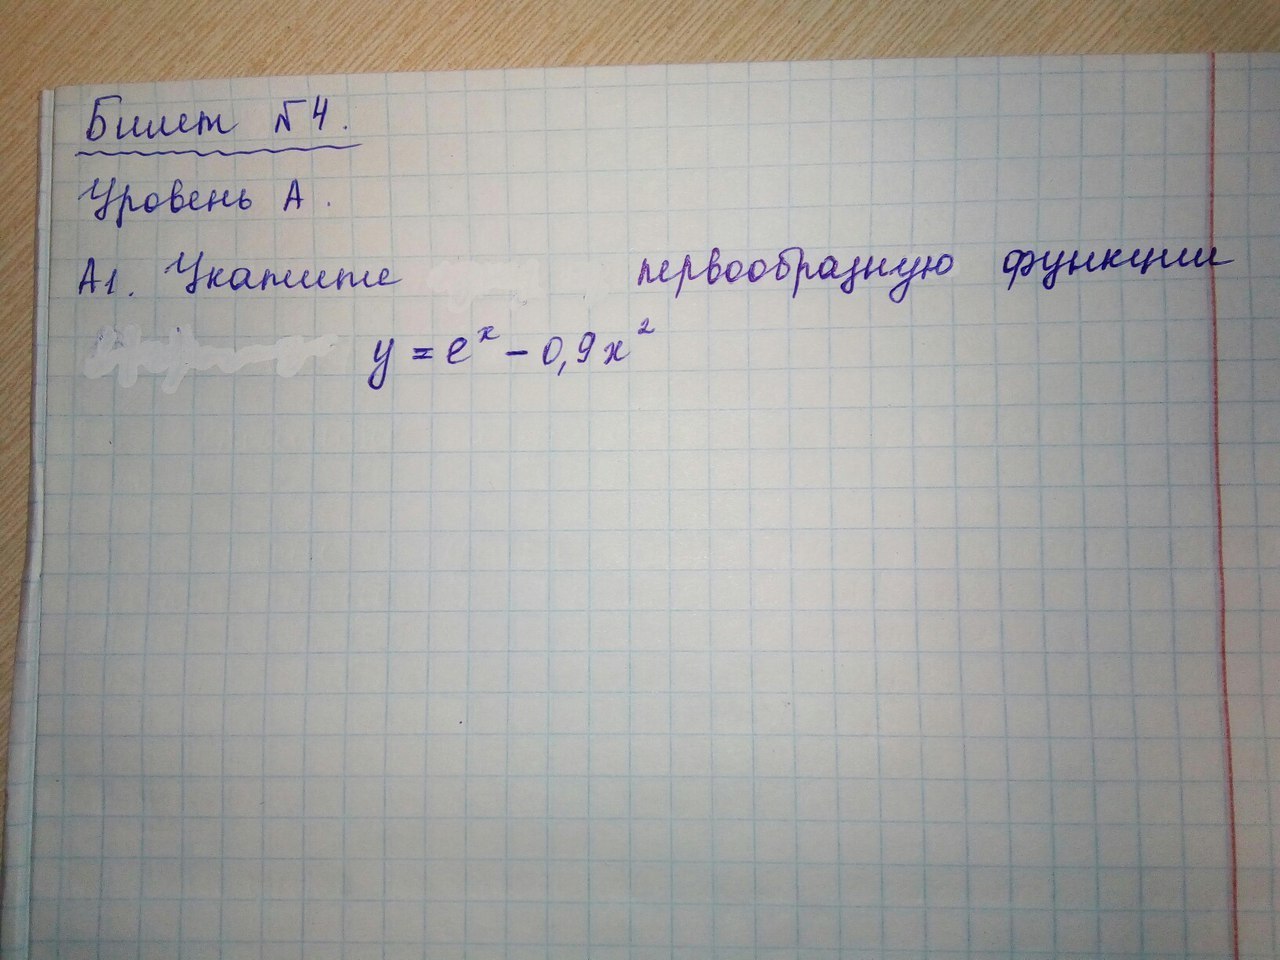 Билет №4.
Уровень А.
А1. Укажите первообразную функции
y = eˣ - 0,9x²